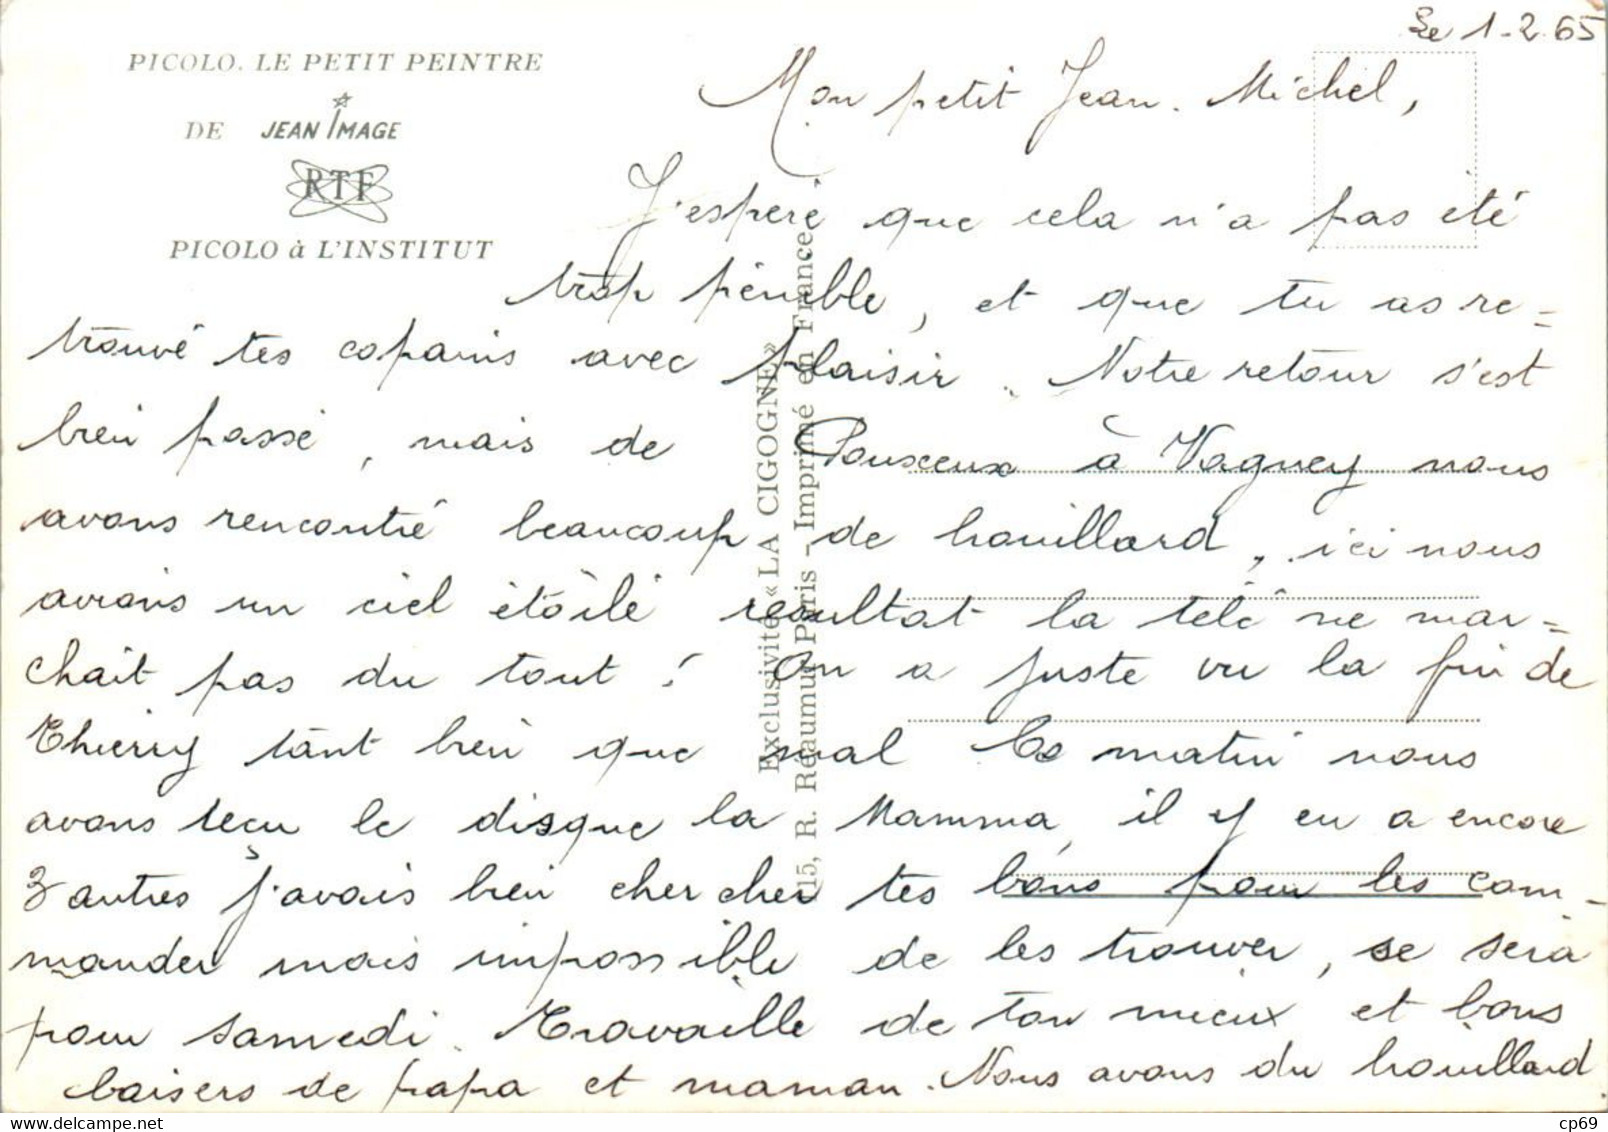 Le 1-2-65
PICOLO. LE PETIT PEINTRE
DE JEAN IMAGE
RTF
PICOLO à L'INSTITUT
Mon petit Jean. Michel,
J'espère que cela n'a pas été
trop pénible, et que tu as re=
trouvé tes copains avec plaisir. Notre retour s'est
bien passé, mais de Pouxeux à Vagney nous
avons rencontré beaucoup de brouillard, ici nous
avions un ciel étoilé resultat la télé ne mar=
chait pas du tout ! On a juste vu la fin de
Thierry tant bien que mal Ce matin nous
avons reçu le disque la Mamma, il y en a encore
3 autres j'avais bien chercher tes bons pour les com-
mander mais impossible de les trouver, se sera
pour samedi. Travaille de ton mieux et bons
baisers de papa et maman. Nous avons du brouillard
Exclusivité «LA CIGOGNE»
15, R. Réaumur Paris - Imprimé en France
cp69